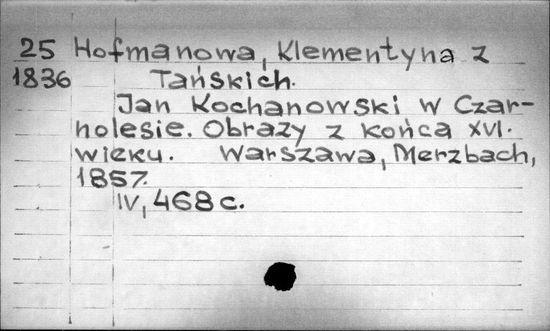 25 Hofmanowa, Klementyna z
1836 Tańskich.
Jan Kochanowski w Czar-
nolesie. Obrazy z końca XVI.
wieku. Warszawa, Merzbach,
1857.
IV, 468 c.